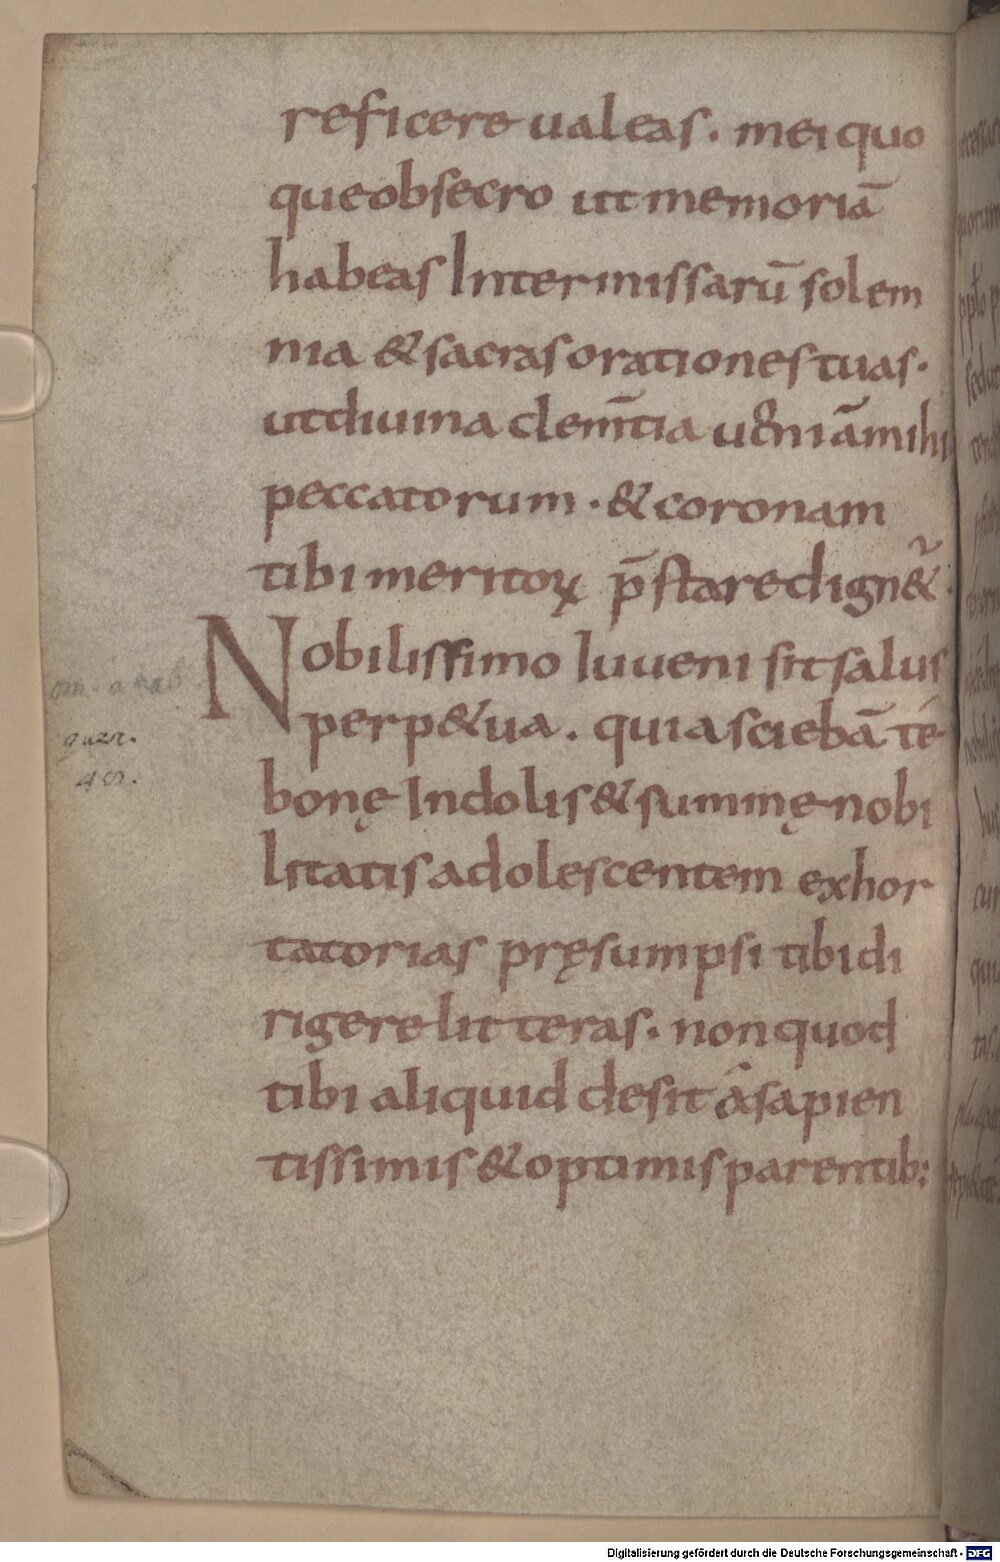 reficere ualeas. mei quo
que obsecro ut memoriā
habeas Inter missarū solem
nia & sacras orationes tuas.
ut diuina clem̄tia ueniā mihi
peccatorum . & coronam
tibi meritoꝝ p̄stare dign&ur.
Nobilissimo Iuueni sit salus
perp&ua . quia sciebā te
bonę Indolis & summę nobi
litatis adolescentem exhor
tatorias pręsumpsi tibi di
rigere litteras. non quod
tibi aliquid desit â sapien
tissimis & optimis parentib;
quer.
Digitalisierung gefördert durch die Deutsche Forschungsgemeinschaft - DFG